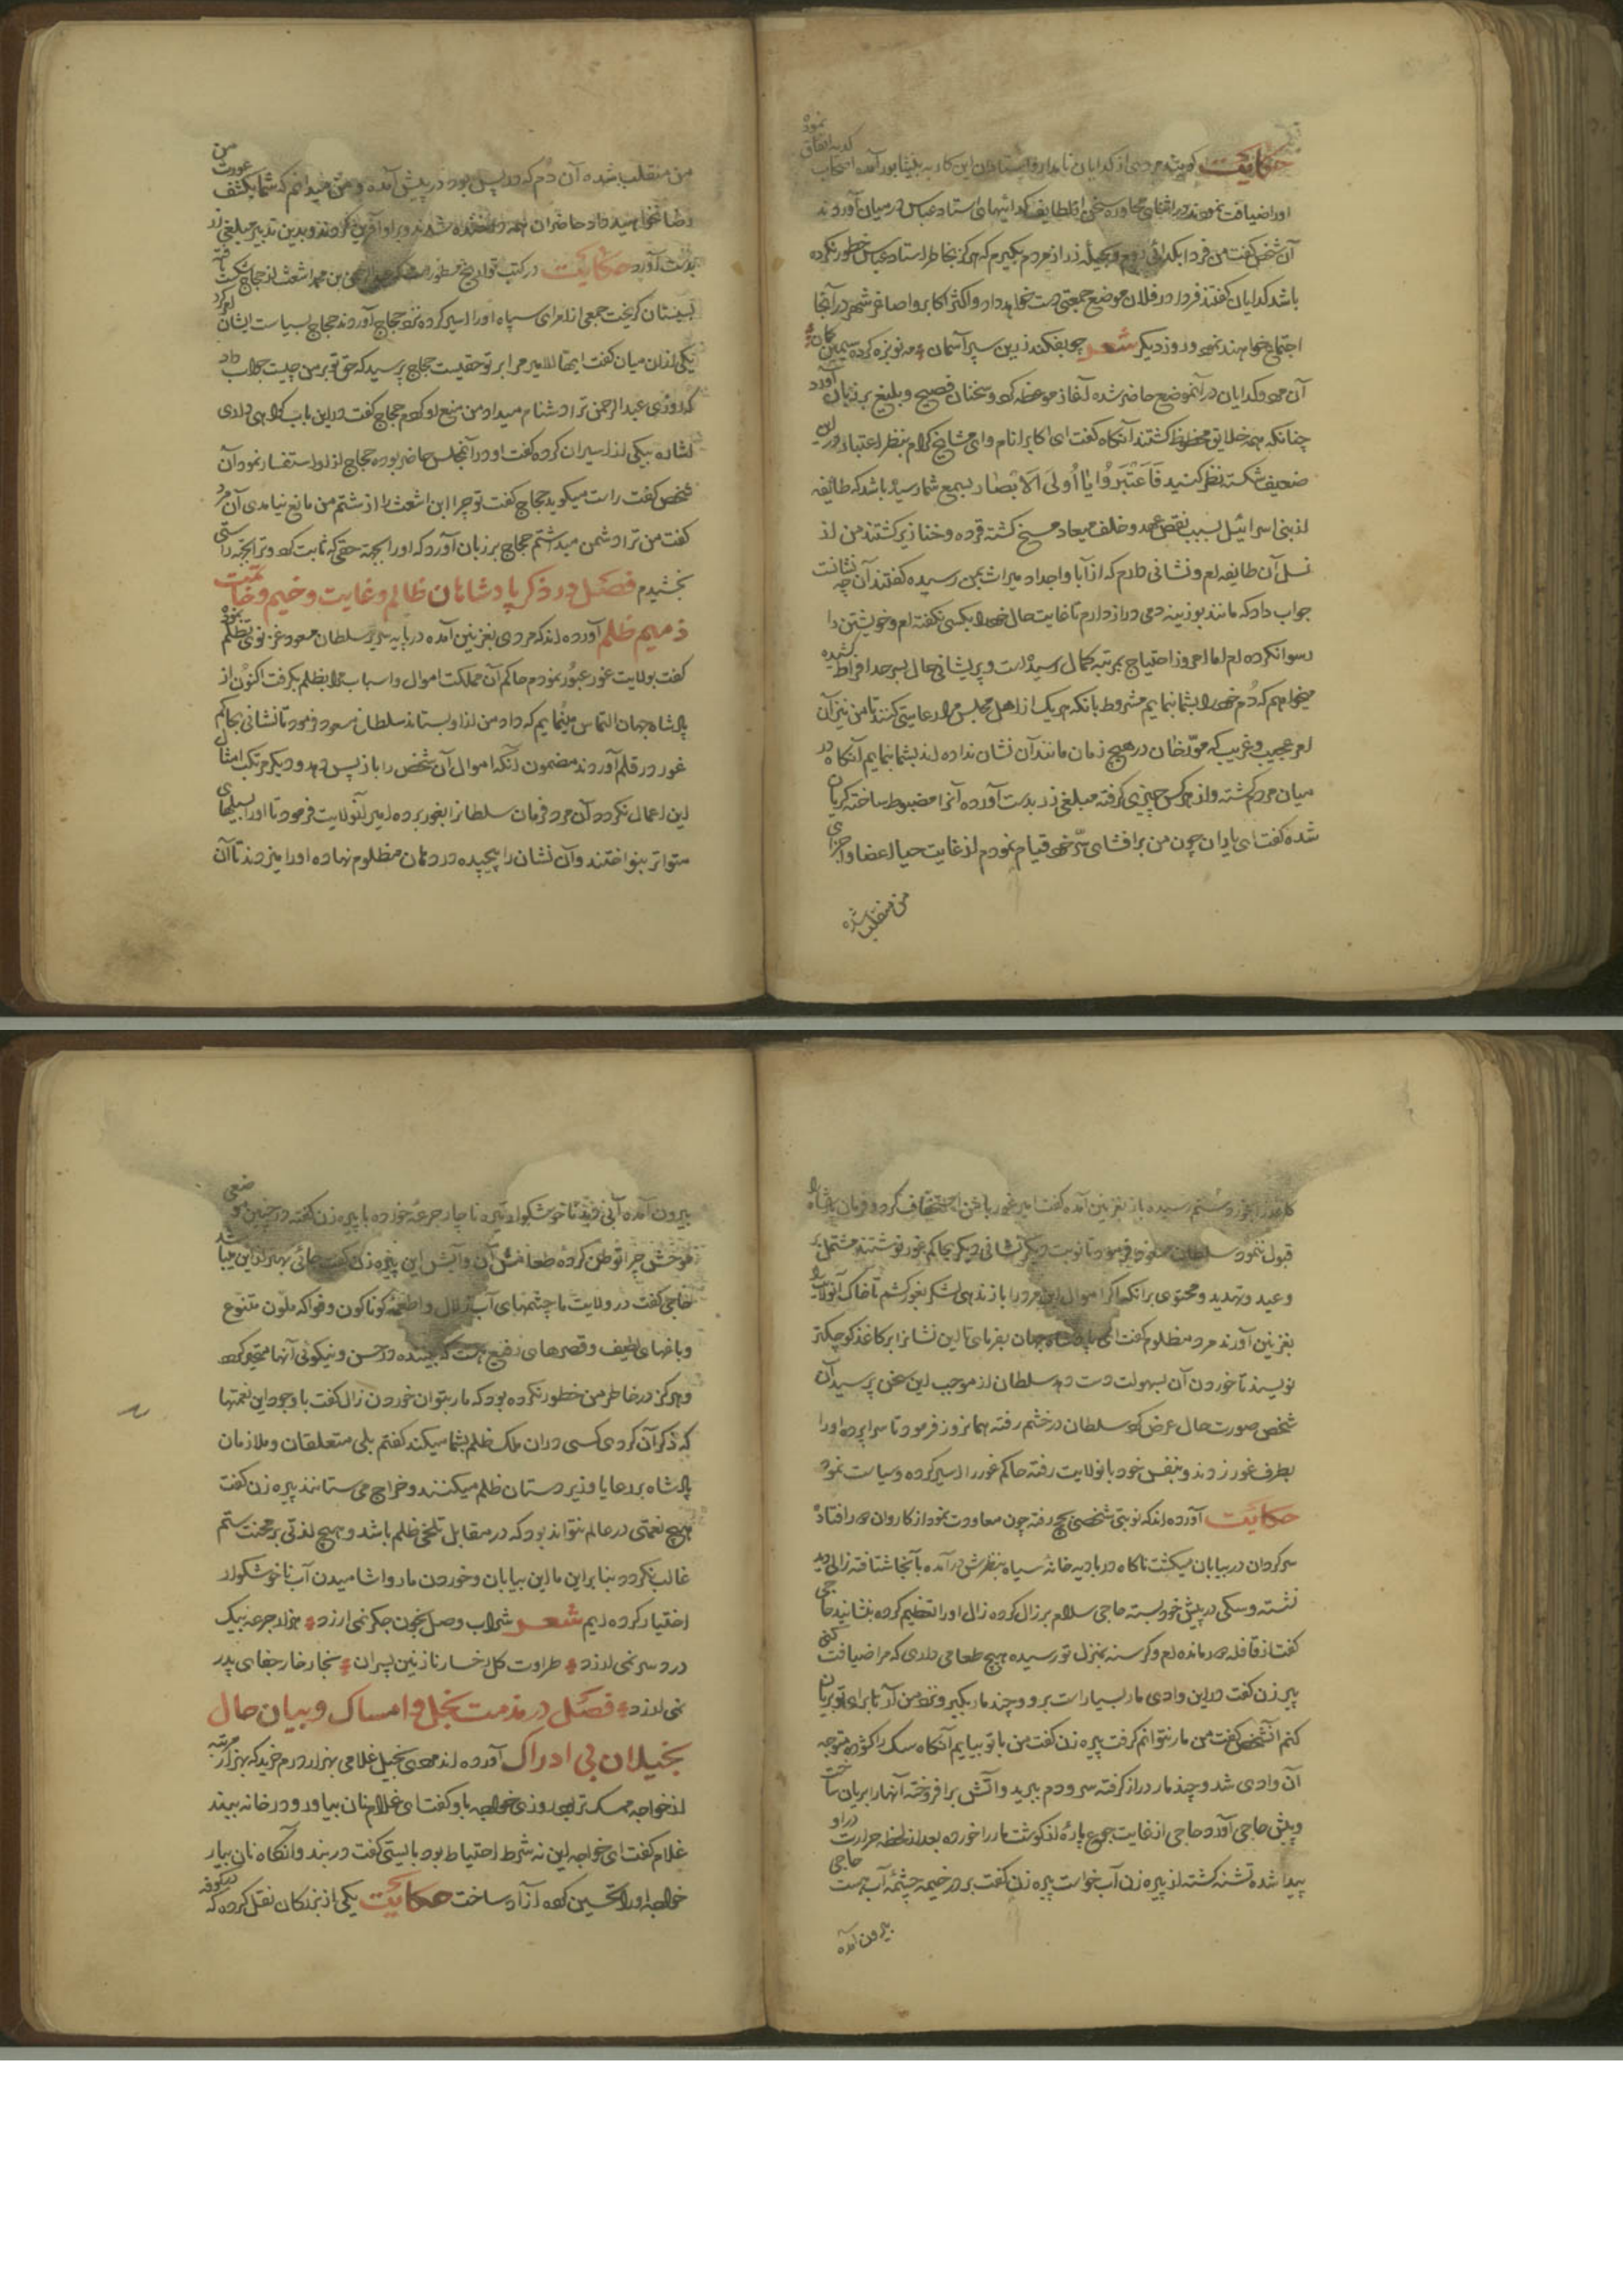 حکایت گویند مردی از گدایان نامدار و استادان این کار به نیشابور آمده اصحاب کدیه اتفاق نمود
او را ضیافت نمودند در اثنای محاوره سخن از لطایف گدائیهای استاد عباس در میان آوردند
آن شخص گفت من فردا بگدائی روم و بحیله زر از مردم بگیرم که هرگز بخاطر استاد عباس خطور نکرده
باشد گدایان گفتند فردا در فلان موضع جمعیتی دست خواهد داد و اکثر اکابر و اصاغر شهر در آنجا
اجتماع خواهند نمود روز دیگر شعر چو بفکند زرین سپر آسمان مه نو بزه کرده سیمین کمان
آن مرد و گدایان در آنموضع حاضر شده آغاز موعظه کرد و سخنان فصیح و بلیغ بر زبان آورد
چنانکه همه خلایق محظوظ گشتند آنگاه گفت ای اکابر انام و ای مشایخ کرام بنظر اعتبار در این
ضعیف شکسته نظر کنید فَاعْتَبِرُوا یَا اُولِی الْاَبْصَار بسمع شما رسیده باشد که طائفه
از بنی اسرائیل بسبب نقض عهد و خلف میعاد مسخ گشته قرده و خنازیر گشتند من از
نسل آن طایفه ام و نشانی دارم که از آبا و اجداد میراث بمن رسیده گفتند آن چه نشانست
جواب داد که مانند بوزینه دمی دراز دارم تا غایت حال خود را بکسی نگفته ام و خویشتن را
رسوا نکرده ام اما امروز احتیاج بمرتبه کمال رسیده است و پریشانی حال بسرحد افراط کشیده
میخواهم که دُم خود را بشما نمایم مشروط بانکه هر یک از اهل مجلس مرا رعایتی کنند تا من نیز آن
امر عجیب و غریب که مورّخان در هیچ زمان مانند آن نشان نداده اند بشما بنمایم آنگاه در
میان مردم گشته و از هرکس چیزی گرفته مبلغی زر بدست آورده آنرا مضبوط ساخته گریان
شده گفت ای یاران چون من بر افشای سرّ خود قیام نمودم از غایت حیا اعضا و اجزای
من منقلب شده
من منقلب شده آن دُم که در پس بود در پیش آمده و من میدانم که شما بکشف عورت من
رضا نخواهید داد حاضران همه در خنده شدند و بر او آفرین کردند و بدین تدبیر مبلغی زر
بدست آورد حکایت در کتب تواریخ مسطور است که عبد الرحمن بن محمد اشعث از حجاج شکست یافته
بسیستان گریخت جمعی از امرای سپاه او را اسیر کرده نزد حجاج آوردند حجاج بسیاست ایشان امر کرد
یکی از ان میان گفت ایها الامیر مرا بر تو حقیست حجاج پرسید که حق تو بر من چیست جواب داد
که روزی عبد الرحمن ترا دشنام میداد من منع او کردم حجاج گفت در این باب گواهی داری
اشاره بیکی از اسیران کرده گفت او در آنمجلس حاضر بوده حجاج از او استفسار نمود آن
شخص گفت راست میگوید حجاج گفت تو چرا ابن اشعث را از شتم من مانع نیامدی آن مرد
گفت من ترا دشمن میداشتم حجاج بر زبان آورد که او را بجهة حقی که ثابت کرد و ترا بجهة راستی
بخشیدم فصل در ذکر پادشاهان ظالم و غایت وخیم و خاتمت
ذمیم ظلم آورده اند که مردی بغزنین آمده در پایه سریر سلطان مسعود غزنوی تظلم نمود
گفت بولایت غور عبور نمودم حاکم آن مملکت اموال و اسباب مرا بظلم بگرفت اکنون از
پادشاه جهان التماس مینمایم که داد من از او بستاند سلطان مسعود فرمود تا نشانی بحاکم
غور در قلم آوردند مضمون آنکه اموال آن شخص را باز پس دهد و دیگر مرتکب امثال
این اعمال نکردد آن مرد فرمان سلطانرا بغور برده امیر آنولایت فرمود تا او را سیلیهای
متواتر بنواختند و آن نشان را پیچیده در دهان مظلوم نهاده او را میزدند تا آن
کاغذ را بخورد و ستم رسیده باز بغزنین آمده گفت امیر غور با من استخفاف کرد و فرمان پادشاه را
قبول ننمود سلطان مسعود فرمود تا نوبت دیگر نشانی دیگر بحاکم غور نوشتند مشتمل بر
وعید و تهدید و محتوی بر آنکه اگر اموال این مرد را باز ندهی لشکر بغور کشم تا خاک آنولایت را
بغزنین آورند مرد مظلوم گفت ای پادشاه جهان بفرمای تا این نشانرا بر کاغذ کوچکتر
نویسند تا خوردن آن بسهولت دست دهد سلطان از موجب این سخن پرسید آن
شخص صورت حال عرض کرد سلطان در خشم رفته همانروز فرمود تا سراپرده او را
بطرف غور زدند و بنفس خود بانولایت رفته حاکم غور را اسیر کرده و سیاست نمود
حکایت آورده اند که نوبتی شخصی بحج رفته چون معاودت نمود از کاروان دور افتاد
سرگردان در بیابان میگشت ناگاه در بادیه خانهٔ سیاه بنظرش در آمده بآنجا شتافته زالی دید
نشسته و سگی در پیش خود بسته حاجی سلام بر زال کرده زال او را تعظیم کرده بنشانید حاجی
گفت از قافله دور مانده ام و گرسنه بمنزل تو رسیده هیچ طعامی داری که مرا ضیافت کنی
پیر زن گفت در این وادی مار بسیار است برو و چند مار بگیر و نزد من آر تا برای تو بریان
کنم آنشخص گفت من مار نتوانم گرفت پیره زن گفت من با تو بیایم آنگاه سگ را گشوده متوجه
آن وادی شد و چند مار دراز گرفته سر و دم ببرید و آتش بر افروخته آنها را بریان ساخت
و پیش حاجی آورد حاجی از غایت جوع پارهٔ از گوشت مار را خورده بعد از لحظه حرارت در او
پیدا شده تشنه گشته از پیره زن آب خواست پیره زن گفت بر در خیمه چشمهٔ آب هست حاجی
بیرون آمده
بیرون آمده آبی دید ناخوشگوار و تیره ناچار جرعه خورده با پیره زن گفت در چنین موضعی
موحش چرا توطن کردهٔ طعامش آن و آبش این پیره زن گفت جائی بهتر از این میباشد
حاجی گفت در ولایت ما چشمهای آب زلال و اطعمه گوناگون و فواکه ملون متنوع
و باغهای لطیف و قصرهای رفیع هست که بیننده در حسن و نیکوئی آنها متحیر گردد
و هرگز در خاطر من خطور نکرده بود که مار بتوان خوردن زال گفت با وجود این نعمتها
که ذکر آن کردی کسی در ان ملک ظلم بشما میکند گفتم بلی متعلقان و ملازمان
پادشاه بر رعایا و زیر دستان ظلم میکنند و خراج می ستانند پیره زن گفت
هیچ نعمتی در عالم نتواند بود که در مقابل تلخی ظلم باشد و هیچ لذتی بر محنت ستم
غالب نگردد بنابراین ما این بیابان و خوردن مار و اشامیدن آب ناخوشگوار
اختیار کرده ایم شعر شراب وصل بخون جگر نمی ارزد هزار جرعه بیک
درد سر نمی ارزد طراوت گل رخسار نازنین پسران بخار خار جفای پدر
نمی ارزد فصل در مذمت بخل و امساک و بیان حال
بخیلان بی ادراک آورده اند مردی بخیل غلامی بهزار درم خرید که بهزار مرتبه
از خواجه ممسک تر بود روزی خواجه باو گفت ای غلام نان بیاور و در خانه ببند
غلام گفت ای خواجه این نه شرط احتیاط بود بایستی گفت در ببند و آنگاه نان بیار
خواجه او را تحسین کرده آزاد ساخت حکایت یکی از بزرگان نقل کرده که در کوفه